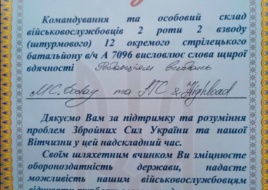 Командування та особовий склад
військовослужбовців 2 роти 2 взводу
(штурмового) 12 окремого стрілецького
батальйону в/ч А 7096 висловлює слова щирої
вдячності
MC.today та ДС & Highload
Дякуємо Вам за підтримку та розуміння
проблем Збройних Сил України та нашої
Вітчизни у цей надскладний час.
Своїм шляхетним вчинком Ви зміцнюєте
обороноздатність держави, надаєте
можливість нашим військовослужбовцям